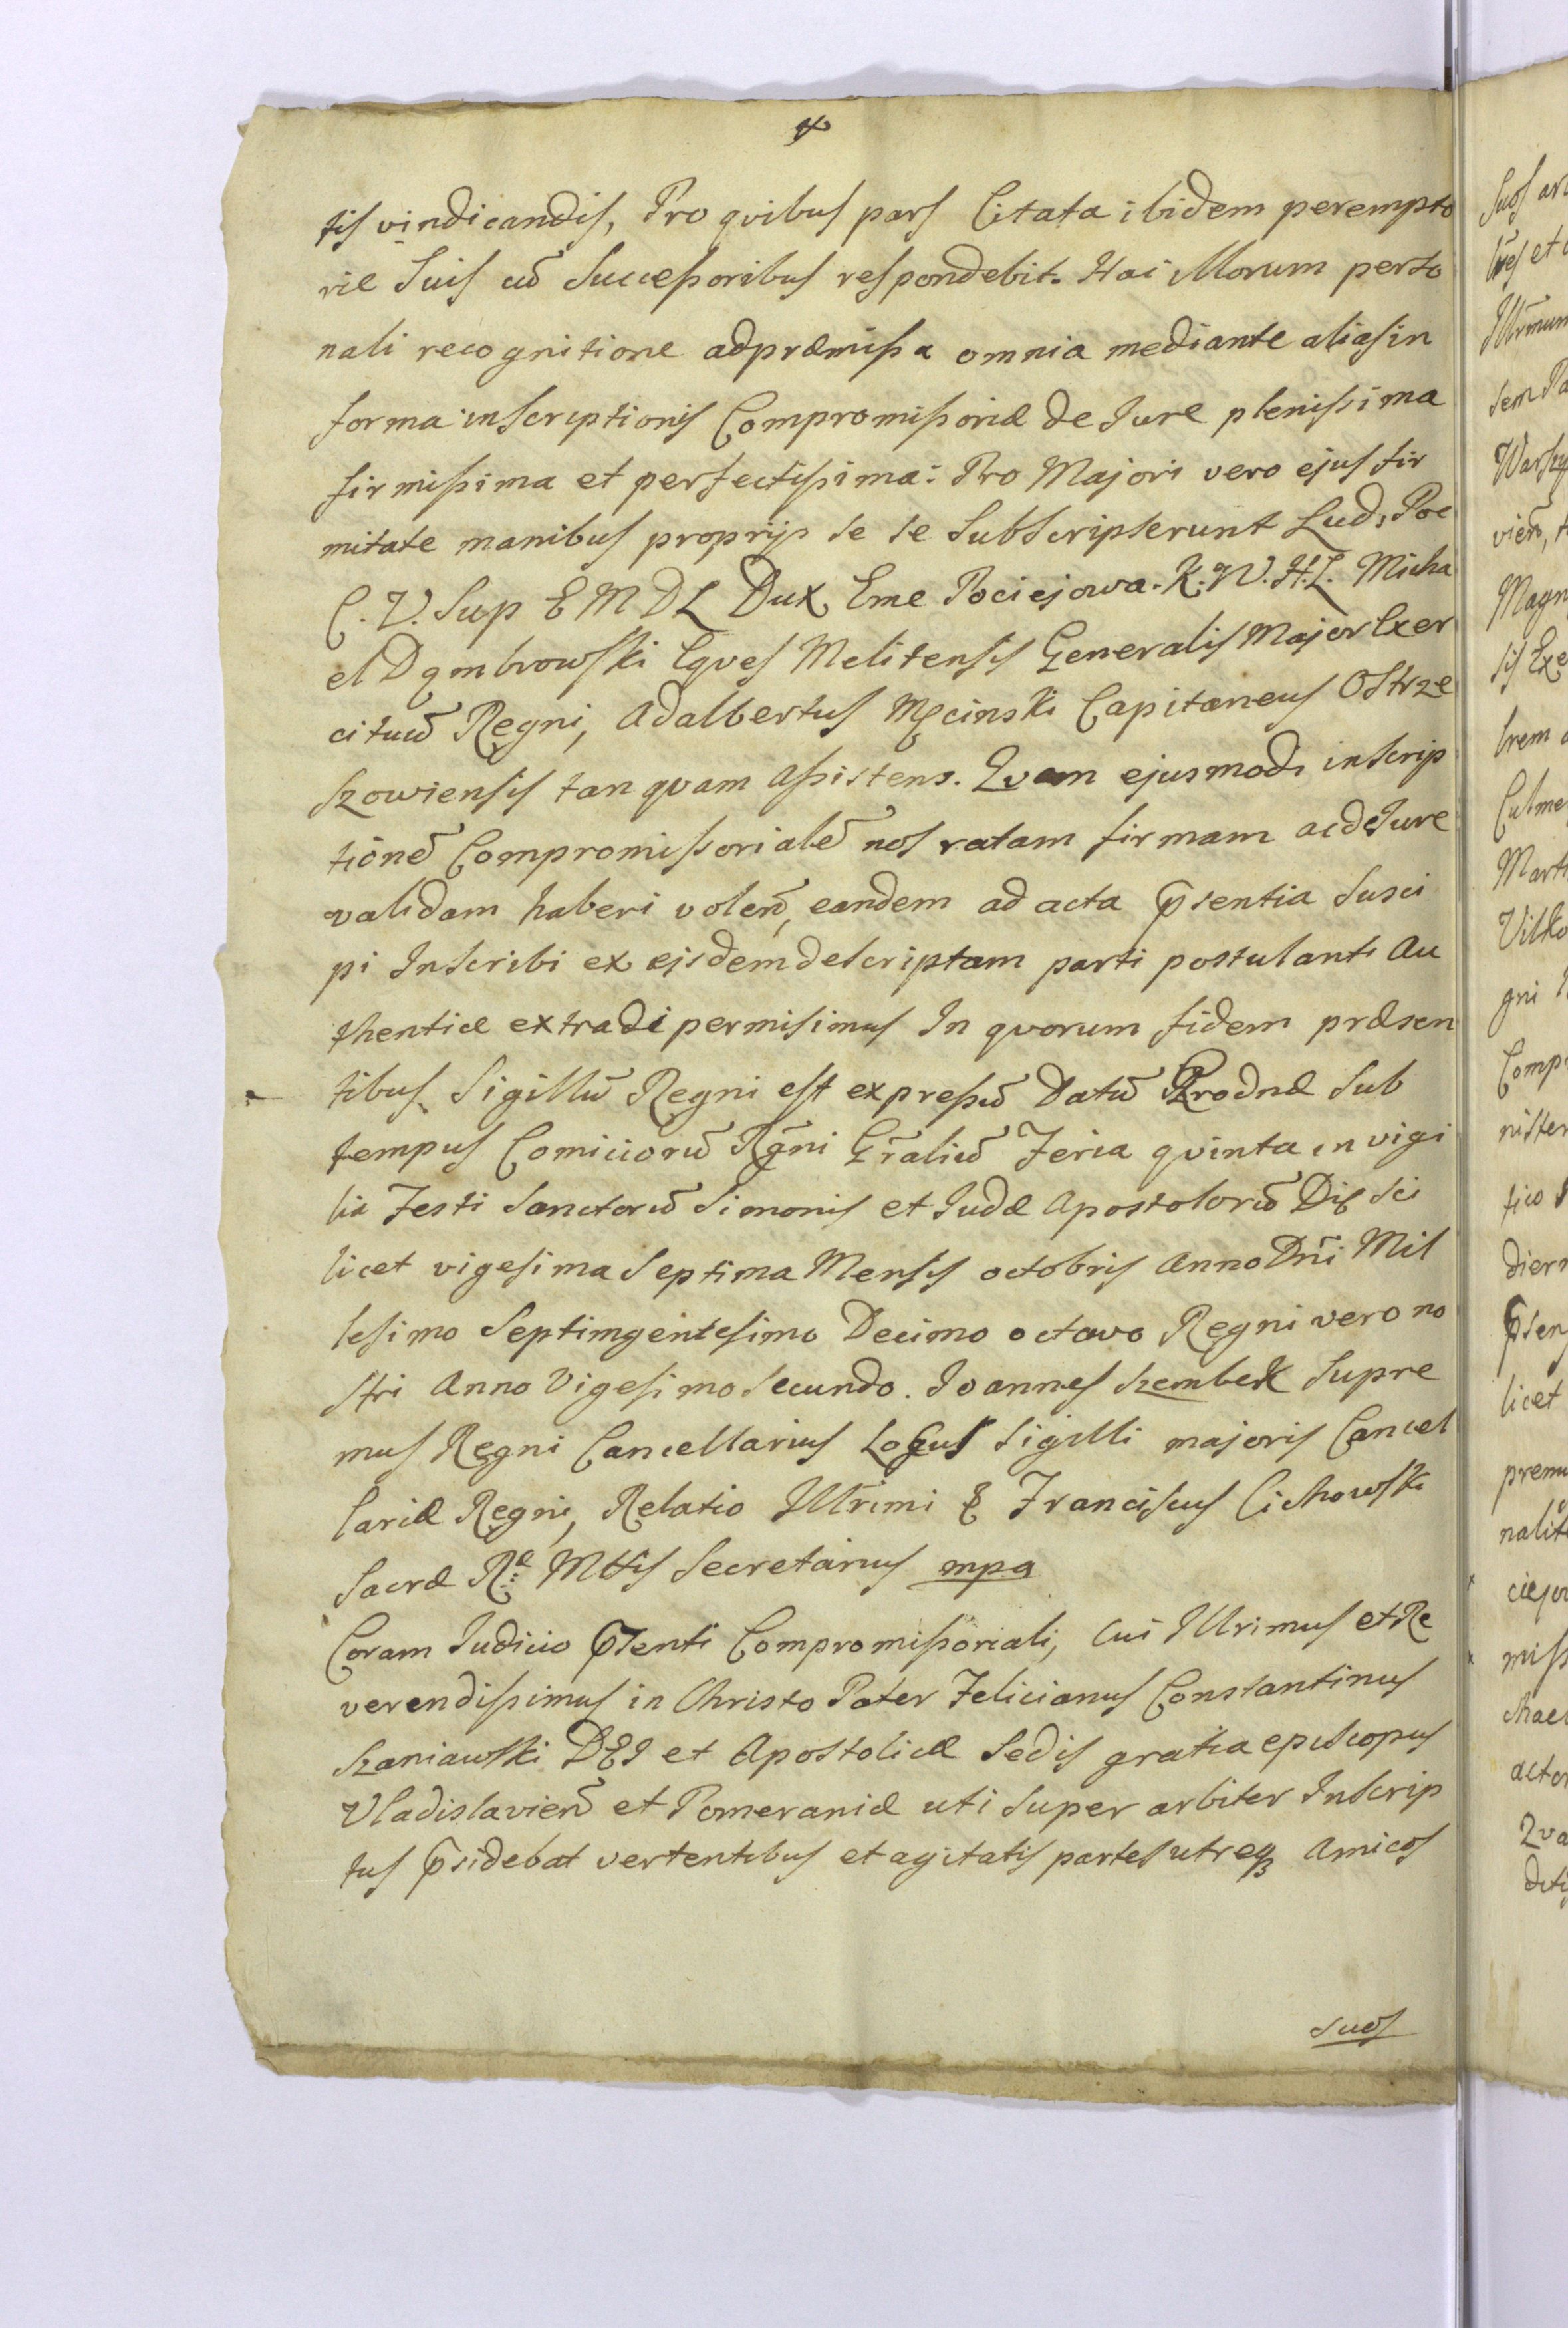 tis vindicandis, Pro qvibus pars Citata ibidem perempto
rie Suis cũ Succeßoribus respondebit. Hac illorum perso
nali recognitione adpræmißa omnia mediante alias in
forma inscriptionis Compromißoriæ de Iure plenißima
firmißima et perfectißima: Pro Majori vero ejus fir
mitate manibus proprijs se se Subscripserunt Lud: Poc
C. V. Sup E M D L Dux, Eme Pociejowa. K. W. H. L. Micha
el Dąmbrowski Eqves Melitensis Generalis Major Exer
cituũ Regni, Adalbertus Męcinski Capitaneus Ostrze
szowiensis tanqvam Aßistens. Qvam ejusmodi inscrip
tionẽ Compromissorialẽ nos ratam firmam ac de Iure
validam haberi voleñ, eandem ad acta p̃sentia Susci
pi Inscribi ex ejsdem descriptam parti postulanti Au
thenticæ extradi permisimus In qvorum fidem præsen
tibus Sigillũ Regni est expreßũ Datũ Grodnæ Sub
tempus Comiciorũ Rg̃ni Gr̃aliũ Feria qvinta in vigi
lia Festi Sanctorũ Simonis et Iudæ Apostolorũ Die Sci
licet vigesima Septima Mensis octobris Anno Dñi Mil
lesimo Septimgentesimo Decimo octavo Regni vero no
stri Anno Vigesimo Secundo. Ioannes Szembek Supre
mus Regni Cancellarius Locus Sigilli majoris Cancel
lariæ Regni, Relatio Illr̃imi & Franciscus Cichowski
Sacræ Ræ: Mttis Secretarius mpa
Coram Iudicio p̃senti Compromißoriali, Cui Illrimus et Re
verendißimus in Christo Pater Felicianus Constantinus
Szaniawski DEI et Apostolicæ Sedis gratia episcopus
Vladislavieñ et Pomeraniæ uti Super arbiter Inscrip
tus p̃sidebat vertentibus et agitatis partes utreqȝ Amicos
suos